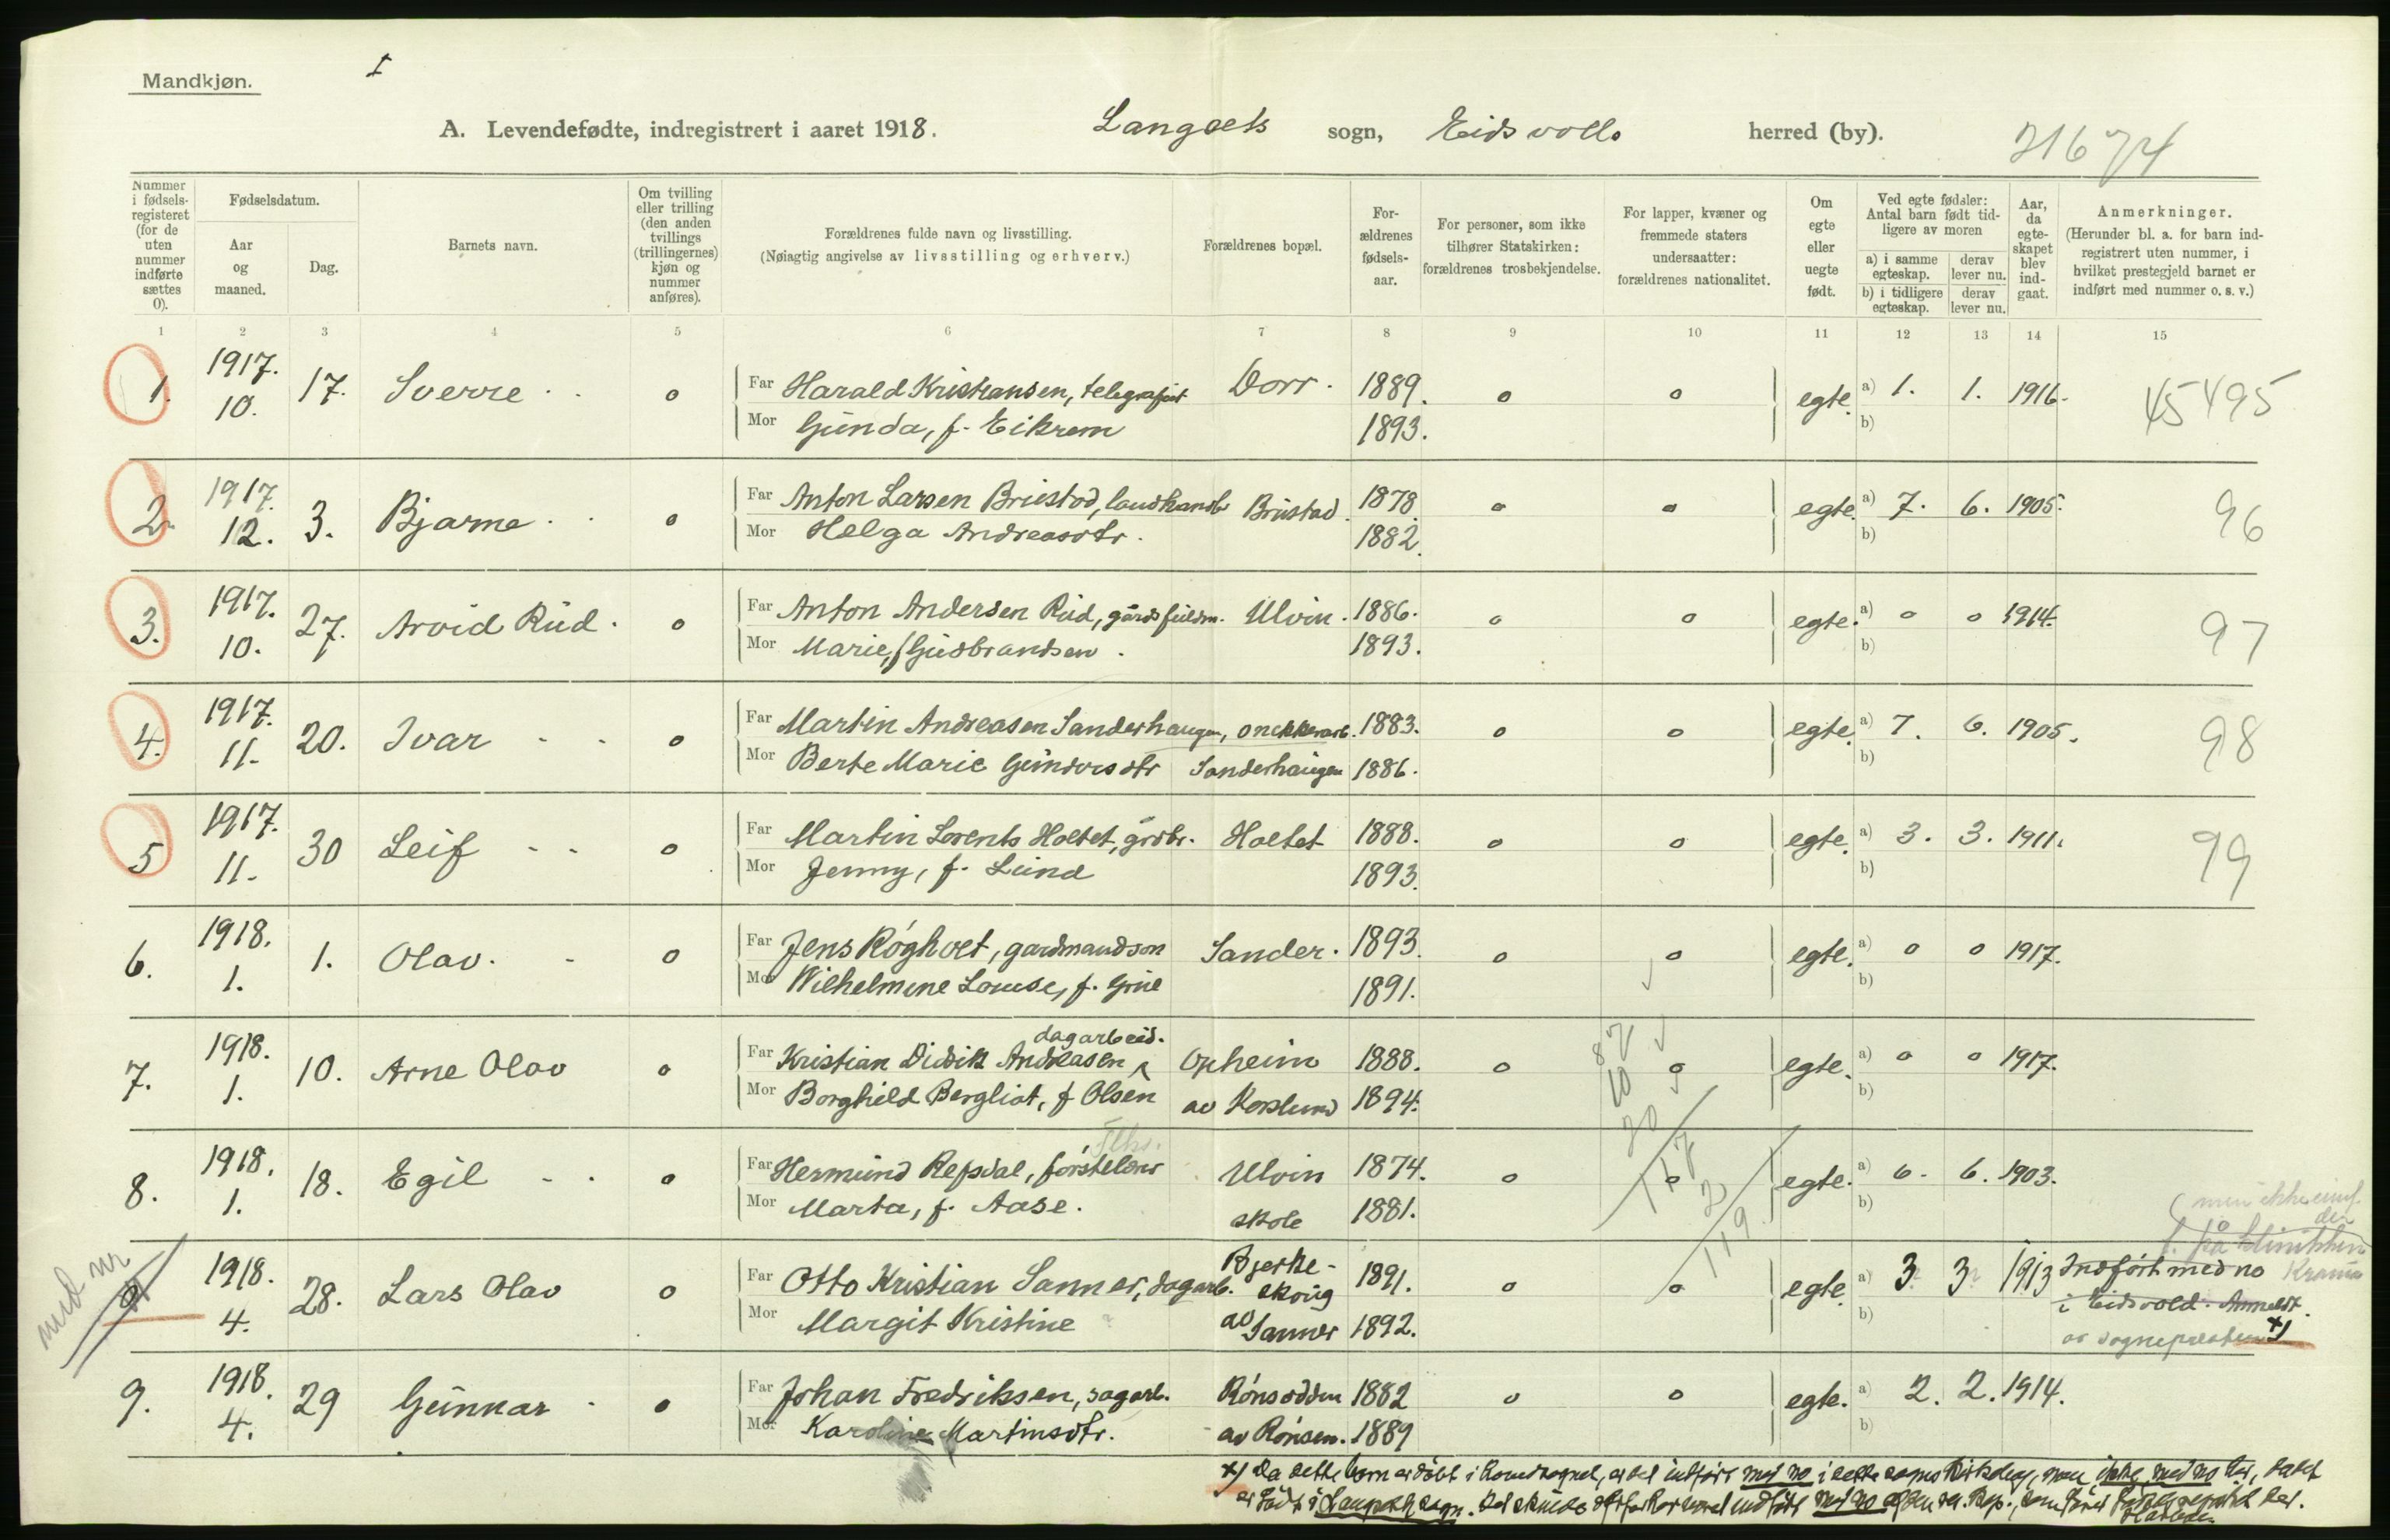 Mandkjøn.
I
A. Levendefødte, indregistrert i aaret 1918. Langsets sogn, Eidsvolls herred (by).
21674
Nummer i fødsels-registeret (for de uten nummer indførte sættes 0).
Fødselsdatum.
Aar og maaned.
Dag.
Barnets navn.
Om tvilling eller trilling (den anden tvillings (trillingernes) kjøn og nummer anføres).
Forældrenes fulde navn og livsstilling.
(Nøiagtig angivelse av livsstilling og erhverv.)
Forældrenes bopæl.
For-ældrenes fødsels-aar.
For personer, som ikke tilhører Statskirken: forældrenes trosbekjendelse.
For lapper, kvæner og fremmede staters undersaatter: forældrenes nationalitet.
Om egte eller uegte født.
Ved egte fødsler: Antal barn født tid-ligere av moren
a) i samme egteskap. derav lever nu.
b) i tidligere egteskap. derav lever nu.
Aar, da egte-skapet blev ind-gaat.
Anmerkninger.
(Herunder bl. a. for barn ind-registrert uten nummer, i hvilket prestegjeld barnet er indført med nummer o. s. v.)
1 2 3 4 5 6 7 8 9 10 11 12 13 14 15
1. 1917. 10. 17. Sverre o Far Harald Kristiansen, telegrafist Dorr. 1889. o o egte. a) 1. 1. 1916. 45495
Mor Gunda, f. Eikrem 1893. b)
2. 1917. 12. 3. Bjarne o Far Anton Larsen Brustad, landhandl. Brustad. 1878. o o egte. a) 7. 6. 1905. 96
Mor Helga Andreasdtr. 1882. b)
3. 1917. 10. 27. Arvid Rud. o Far Anton Andersen Rud, gårdsfuldm. Ulvin. 1886. o o egte. a) o o 1914. 97
Mor Marie, f Gudbrandsen. 1893. b)
4. 1917. 11. 20. Ivar o Far Martin Andreasen Sanderhaugen, snekkerarb. 1883. o o egte. a) 7. 6. 1905. 98
Mor Berte Marie Gundersdtr Sanderhaugen 1886. b)
5 1917. 11. 30 Leif o Far Martin Lorents Holtet, grdbr. Holtet 1888. o o egte. a) 3. 3. 1911. 99
Mor Jenny, f. Lund 1893. b)
6. 1918. 1. 1. Olav. o Far Jens Røgholt, gardmandsøn Sander. 1893. o o egte. a) o o 1917.
Mor Wilhelmine Louise, f. Grue 1891. b)
dagarbeid.
7. 1918. 1. 10. Arne Olav o Far Kristian Didrik Andreasen Opheim 1888. o o egte. a) o o 1917.
Mor Borghild Bergliot, f Olsen av Korslund 1894. b)
8. 1918. 1. 18. Egil o Far Hermund Repdal, førstelærer Ulvin 1874. o o egte. a) 6. 6. 1903.
Mor Marta, f. Aase. skole 1881. b)
uid nr
1918. 4. 28. Lars Olav o Far Otto Kristian Sanner, dagarb. Bjerke-skoug 1891. o o egte. a) 3 3 1913 Indført med no
i Eidsvold. Anmeldt
Mor Margit Kristine av Sanner 1892. b) av sognepresten x)
9. 1918. 4. 29 Gunnar o Far Johan Fredriksen, sagarb. Rønsodden 1882 o o egte. a) 2. 2. 1914.
Mor Karoline Martinsdtr. av Rønsen. 1889 b)
x) Da dette barn er døbt i hovedsognet, er det indført med no i dette sogns kirkebog, men ikke med no her, da det
er født i Langset sogn.